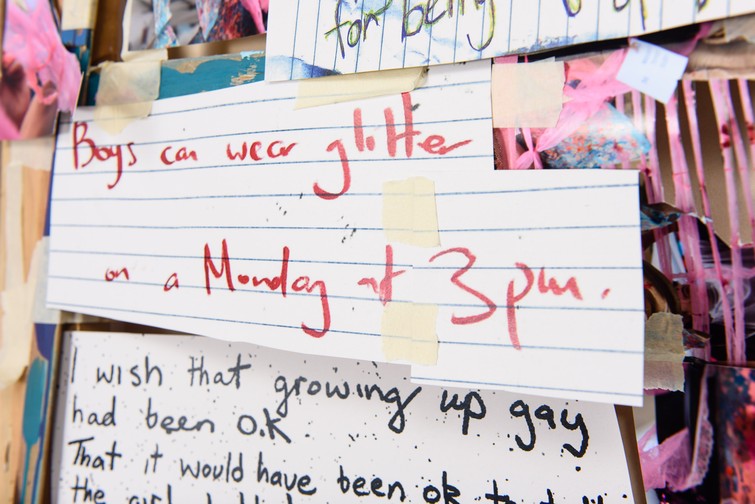 for being
Boys can wear glitter
on a Monday at 3pm.
I wish that growing up gay
had been O.K
That it would have been ok
the girl